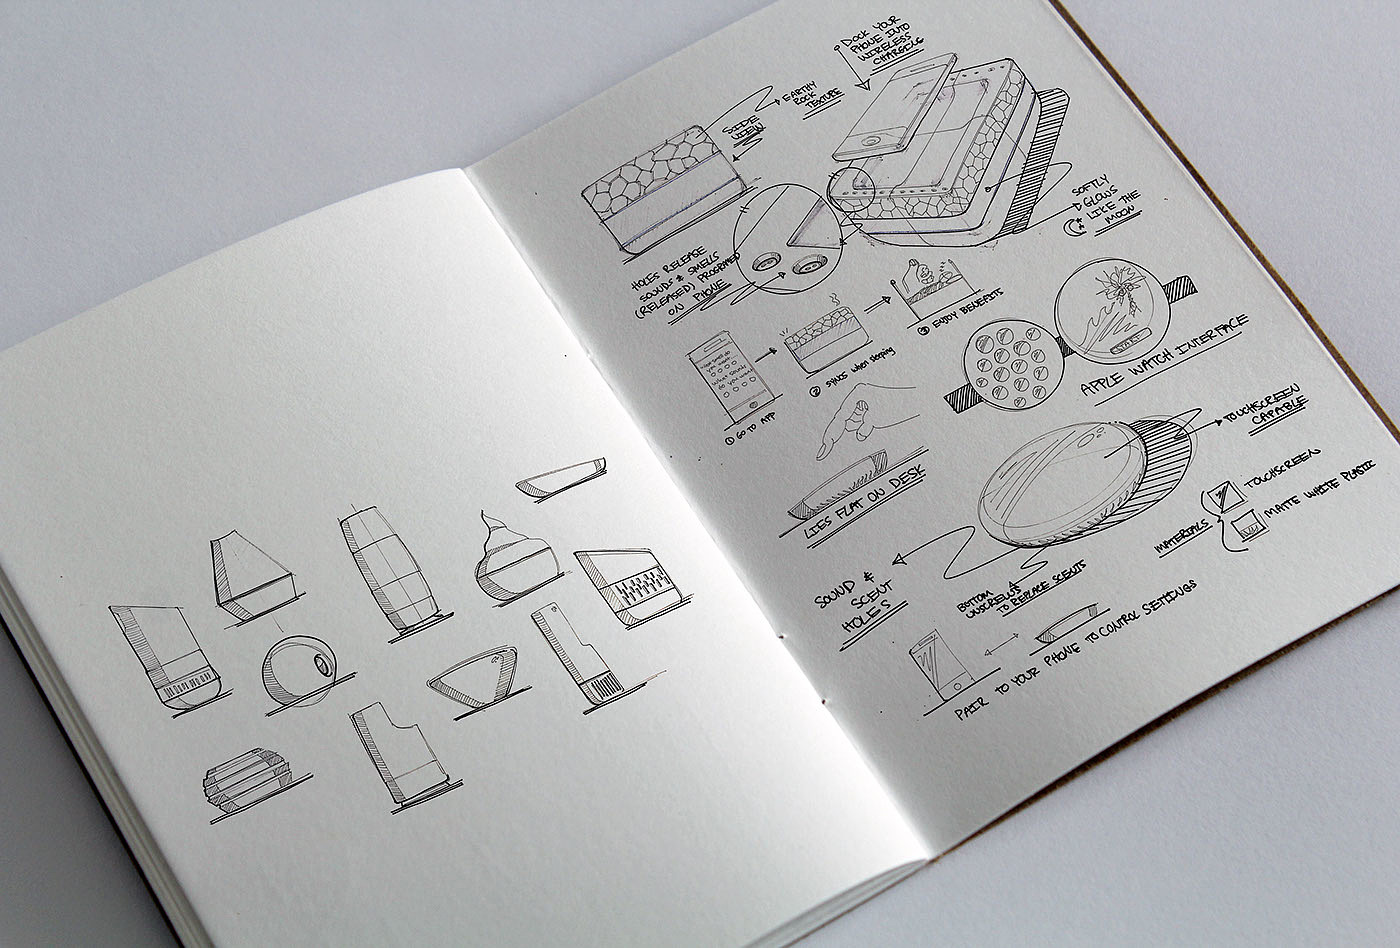 DOCK YOUR
PHONE INTO
WIRELESS
CHARGING
EARTHY
ROCK
TEXTURE
SIDE
VIEW
SOFTLY
GLOWS
LIKE THE
MOON
HOLES RELEASE
SOUNDS & SMELLS
(RELEASED) PROGRAMED
ON PHONE
what sound
do you want
① GO TO APP
② SYNCS when sleeping
③ ENJOY BENEFITS
START
APPLE WATCH INTERFACE
LIES FLAT ON DESK
TOUCHSCREEN
CAPABLE
MATERIALS
TOUCHSCREEN
MATTE WHITE PLASTIC
SOUND &
SCENT
HOLES
BOTTOM
UNSCREWS
TO REPLACE SCENTS
PAIR TO YOUR PHONE TO CONTROL SETTINGS